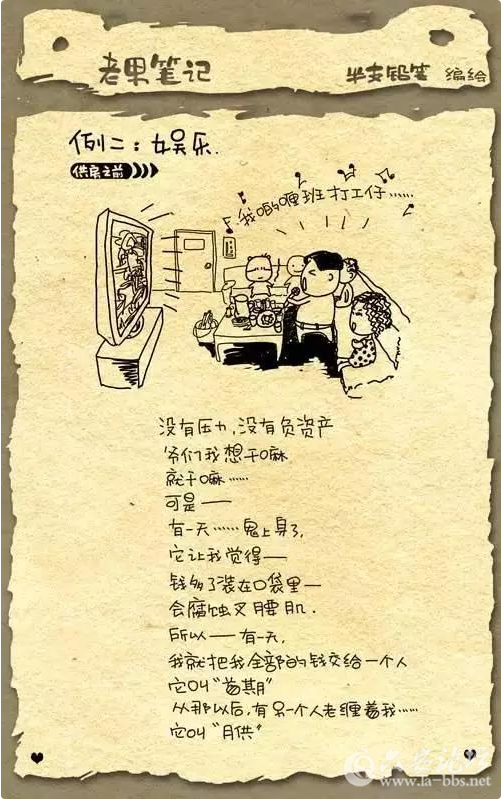 老果笔记
半支铅笔 编绘
例二：娱乐.
供房之前
我哋呢班打工仔……
没有压力,没有负资产
爷们我想干嘛
就干嘛……
可是——
有一天……鬼上身了,
它让我觉得——
钱多了装在口袋里—
会腐蚀叉腰肌.
所以——有一天,
我就把我全部的钱交给一个人
它叫"首期"
从那以后,有另一个人老缠着我……
它叫"月供"
www.la-bbs.net